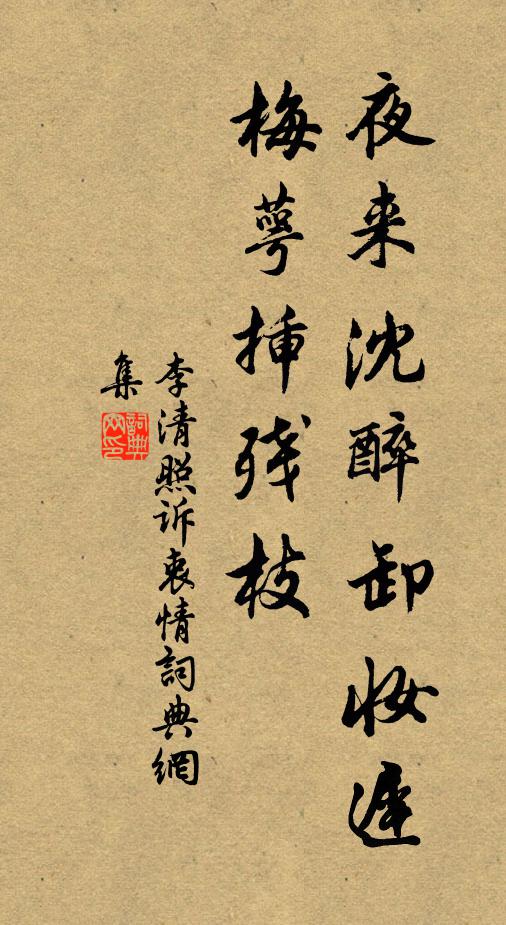 夜来沈醉卸妆遲
梅萼挿残枝
李清照诉衷情詞典網
集
詞典網印